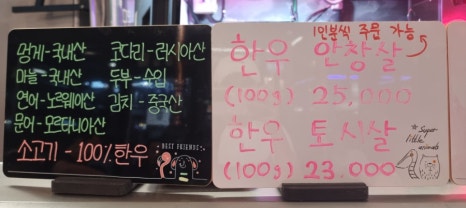 멍게-국내산 코다리-러시아산
마늘-국내산 두부-수입
연어-노르웨이산 김치-중국산
문어-모리타니아산
소고기-100% 한우
BEST FRIENDS
1인분씩 주문 가능
한우 안창살
(100g) 25,000
한우 토시살
(100g) 23.000
Super
little
animals